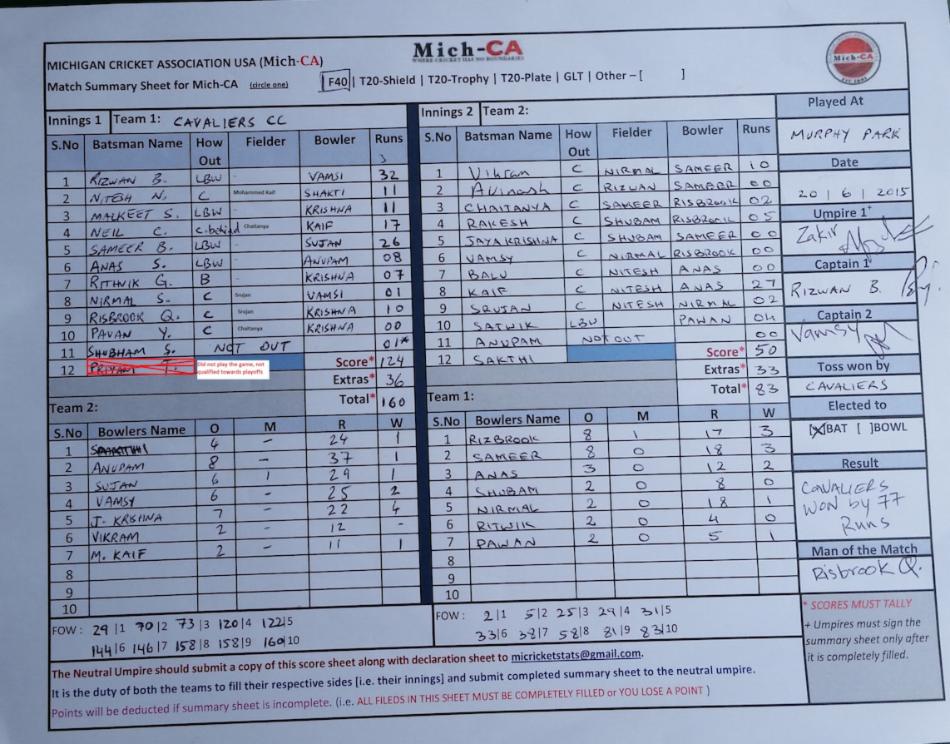 Mich-CA
WHERE CRICKET HAS NO BOUNDARIES
Mich-CA
MICHIGAN CRICKET ASSOCIATION USA (Mich-CA)
Match Summary Sheet for Mich-CA (circle one) F40 | T20-Shield | T20-Trophy | T20-Plate | GLT | Other – [ ]
Innings 1 Team 1: CAVALIERS CC
S.No Batsman Name How Out Fielder Bowler Runs
1 RIZWAN B. LBW - VAMSI 32
2 NITESH N. C Mohammed Kaif SHAKTI 11
3 MALKEET S. LBW - KRISHNA 11
4 NEIL C. c-behind Chaitanya KAIF 17
5 SAMEER B. LBW SUJAN 26
6 ANAS S. LBW ANUPAM 08
7 RITHVIK G. B KRISHNA 07
8 NIRMAL S. C Srujan VAMSI 01
9 RISBROOK Q. C Srujan KRISHNA 10
10 PAVAN Y. C Chaitanya KRISHNA 00
11 SHUBHAM S. NOT OUT 01*
12 PRIYAM T. Did not play the game, not qualified towards playoffs
Score* 124
Extras* 36
Total* 160
Team 2:
S.No Bowlers Name O M R W
1 4 - 24 1
2 ANUPAM 8 - 37 1
3 SUJAN 6 1 29 1
4 VAMSY 6 - 25 2
5 J. KRISHNA 7 - 22 4
6 VIKRAM 2 - 12 -
7 M. KAIF 2 - 11 1
8
9
10
FOW : 29|1 70|2 73|3 120|4 122|5
144|6 146|7 158|8 158|9 160|10
Innings 2 Team 2:
S.No Batsman Name How Out Fielder Bowler Runs
1 Vikram C NIRMAL SAMEER 10
2 Avinash C RIZWAN SAMEER 00
3 CHAITANYA C KRISHNA RISBROOK 02
4 RAKESH C SHUBAM RISBROOK 05
5 JAYAKRISHNA C SHUBAM SAMEER 00
6 VAMSY C NIRMAL RISBROOK 00
7 BALU C NITESH ANAS 00
8 KAIF C NITESH ANAS 27
9 SRUJAN C NITESH NIRMAL 02
10 SATWIK LBW PAWAN 04
11 ANUPAM NOT OUT 00
12 SAKTHI
Score* 50
Extras* 33
Total* 83
Team 1:
S.No Bowlers Name O M R W
1 RIZBROOK 8 1 17 3
2 SAMEER 8 0 18 3
3 ANAS 3 0 12 2
4 SHUBAM 2 0 8 0
5 NIRMAL 2 0 18 1
6 RITWIK 2 0 4 0
7 PAWAN 2 0 5 1
8
9
10
FOW : 2|1 5|2 25|3 29|4 31|5
33|6 38|7 58|8 81|9 83|10
Played At
MURPHY PARK
Date
20 | 6 | 2015
Umpire 1*
Zakir
Captain 1*
RIZWAN B.
Captain 2
Vamsy
Toss won by
CAVALIERS
Elected to
[X]BAT [ ]BOWL
Result
CAVALIERS
WON by 77
Runs
Man of the Match
Risbrook Q.
* SCORES MUST TALLY
+ Umpires must sign the
summary sheet only after
it is completely filled.
The Neutral Umpire should submit a copy of this score sheet along with declaration sheet to micricketstats@gmail.com.
It is the duty of both the teams to fill their respective sides [i.e. their innings] and submit completed summary sheet to the neutral umpire.
Points will be deducted if summary sheet is incomplete. (i.e. ALL FILEDS IN THIS SHEET MUST BE COMPLETELY FILLED or YOU LOSE A POINT )